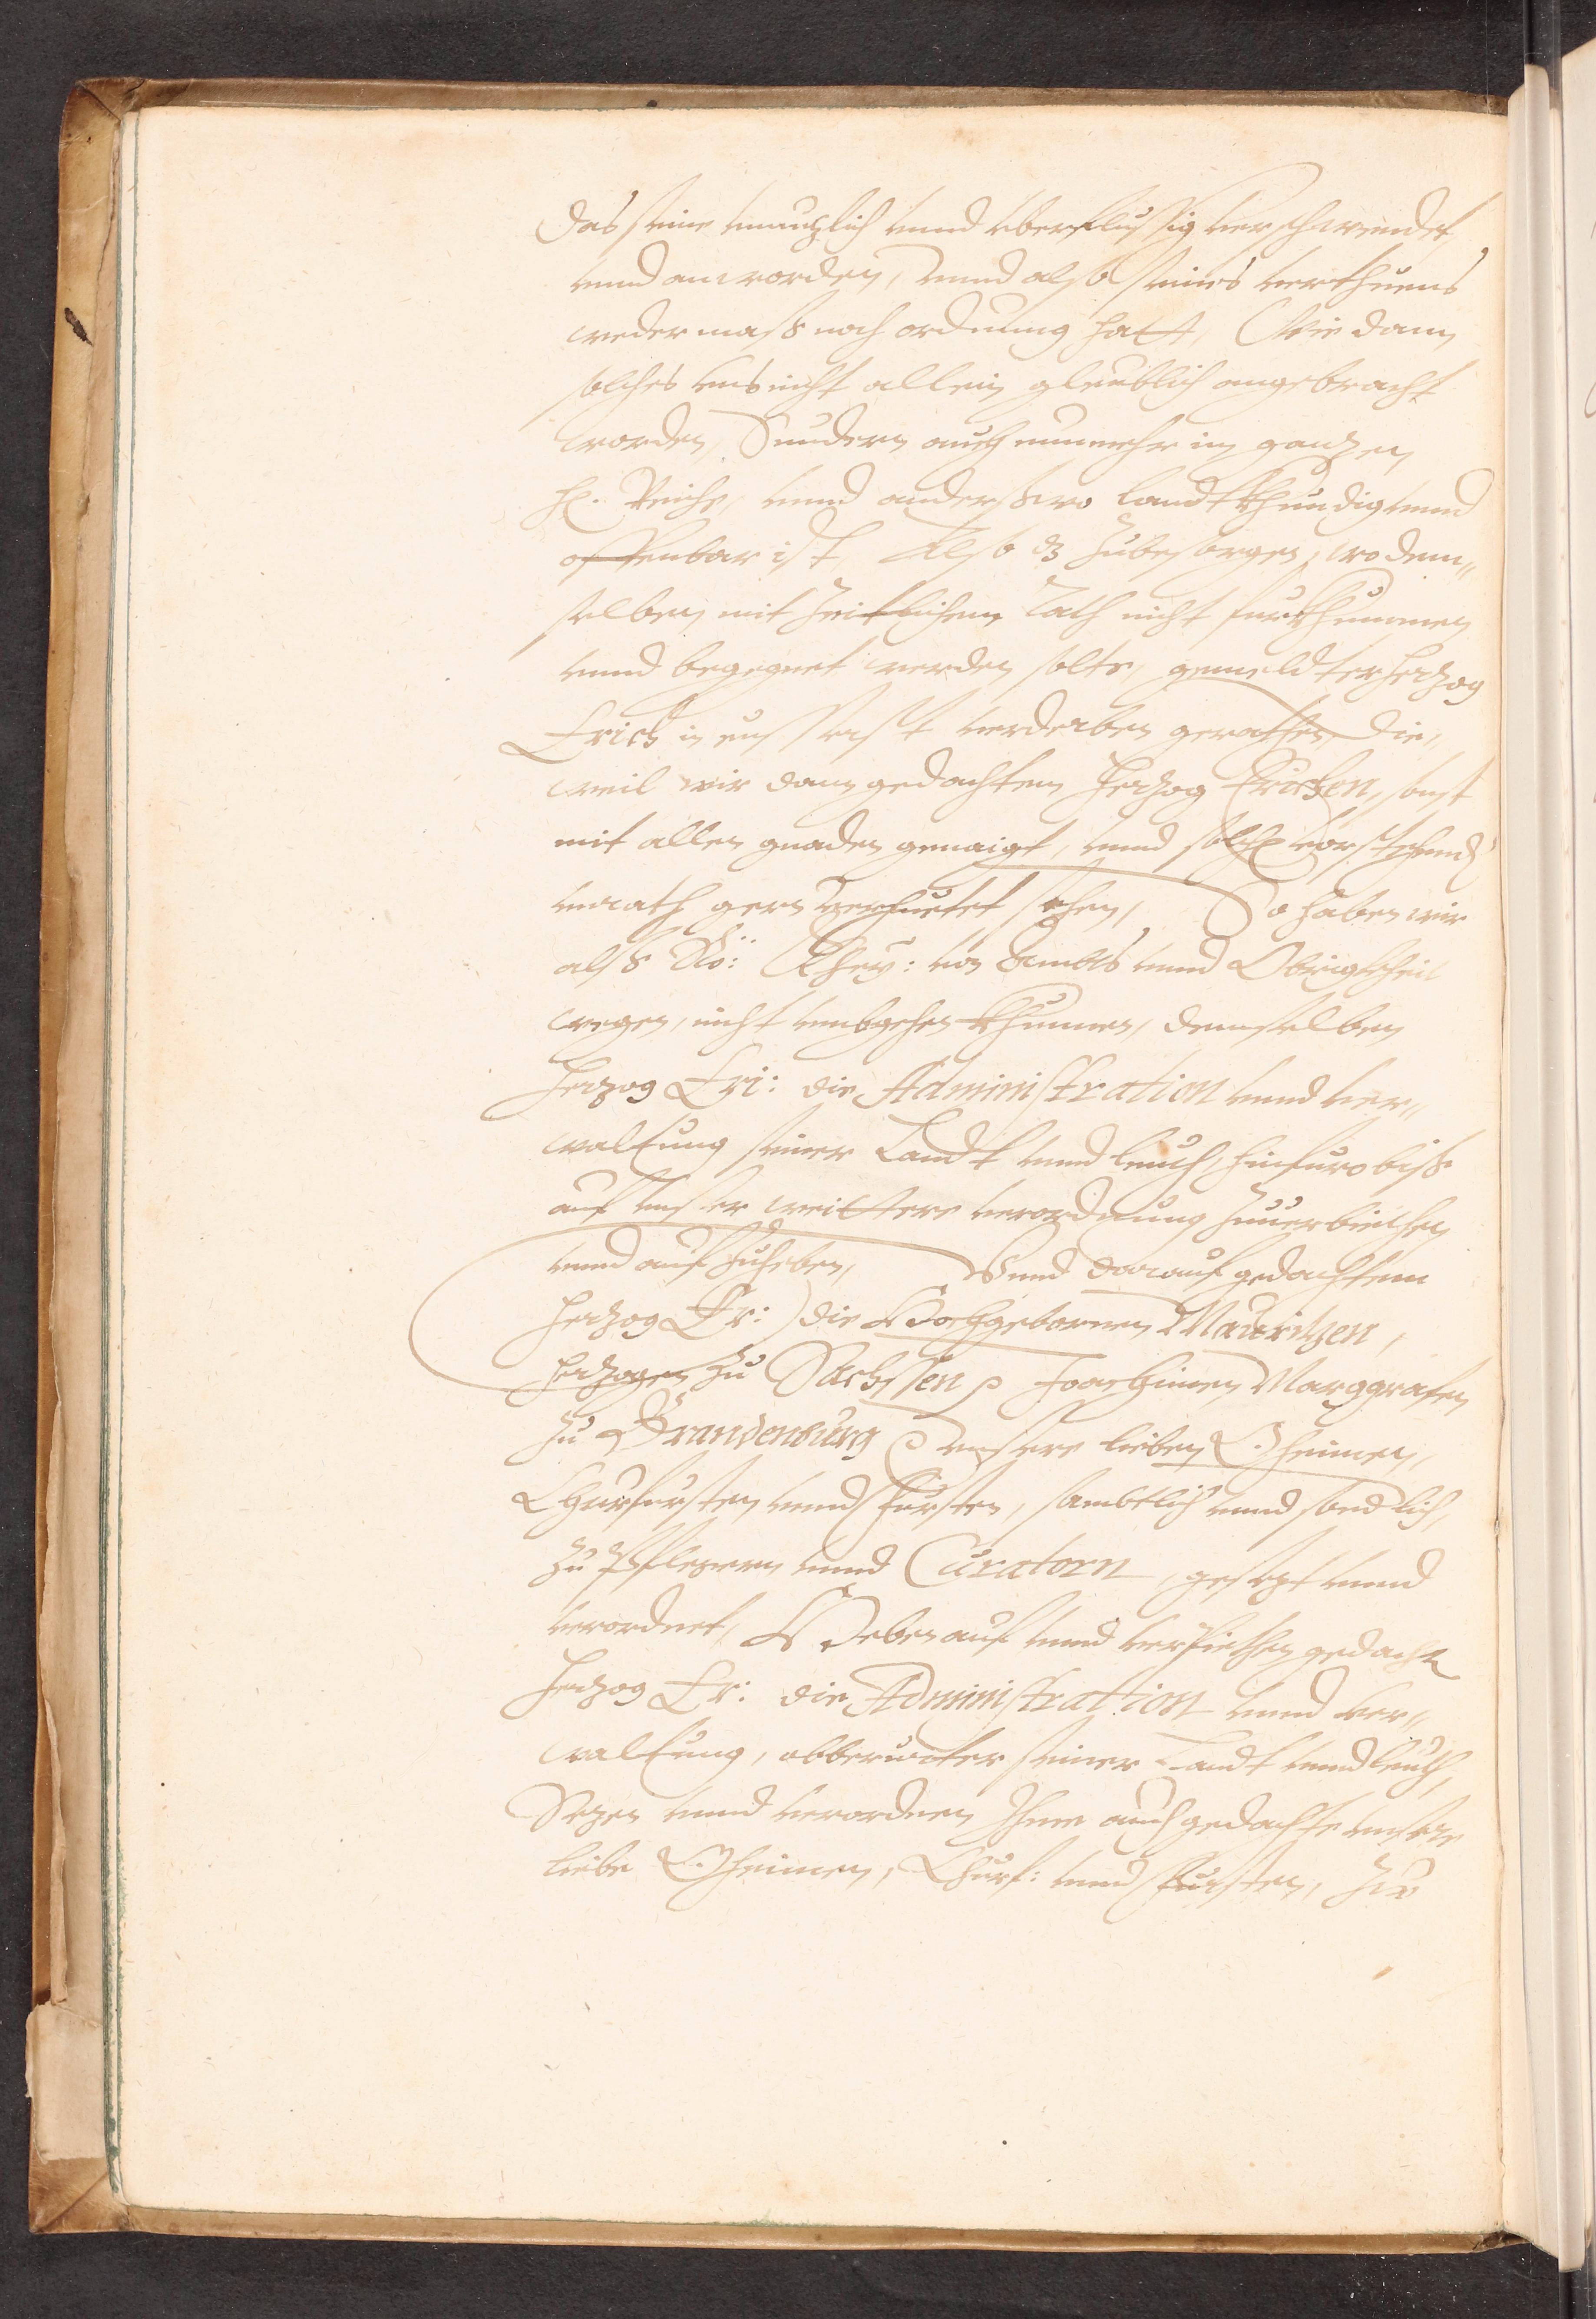 das seine unnuzlich unnd uberflussig verschwendet,
unnd anworden, unnd also seines verthuens
weder mass noch ordnung hatt, Wie dann
solches uns nicht allein gleublich angebracht
worden, Sundern auch nunmehr im ganzen
H. Reiche, unnd anderswo landtkhundig unnd
offenbar ist, Also dz zubesorgen, wo dem„
selben mit Zeitlichem Rath nicht furkhummen
unnd begegnet werden solte, gemeldter Herzog
Erich in verderben gerathen, Die„
weil wir dann gedachtem Herzog Erichen, sonst
mit allen gnaden genaigt, unnd solch vorsteend
unrath gern verhuetet sehen, So haben wir
alss Rö: Khay: von Ambts unnd Obrigkheit
wegen, nicht umbgehen khunnen, demselben
Herzog Eri: die Administration unnd ver„
waltung seiner Landt unnd leuth, hinfuro biss
auf unser weittere verordnung zuverbiethen
unnd aufzuheben, Unnd darauf gedachtem
Herzog Er: die Hochgebornen Mauritzen,
Herzogen zu Sachssen p Joachimen Marggrafen
zu Brandenburg p unsere lieben Oheimen,
Churfursten unnd Fürsten, sambtlich unnd sondlich,
zu Pflegern unnd Curatorn, gesezt unnd
verordnet, Heben auf unnd verpiethen gedacht
Herzog Er: die Administration unnd ver„
waltung, obberürter seiner Landt unnd leuth,
Sezen unnd verordnen Ihme auch gedachte unsere
liebe Oheimen, Churf: unnd Fursten, zu